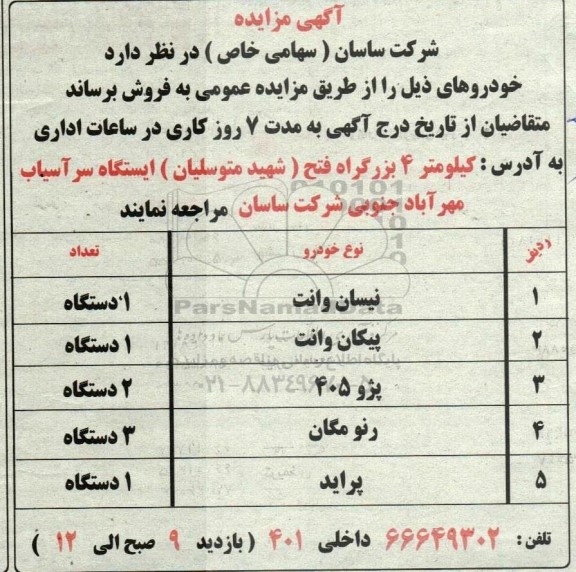 آگهی مزایده
شرکت ساسان ( سهامی خاص ) در نظر دارد
خودروهای ذیل را از طریق مزایده عمومی به فروش برساند
متقاضیان از تاریخ درج آگهی به مدت ۷ روز کاری در ساعات اداری
به آدرس : کیلومتر ۴ بزرگراه فتح ( شهید متوسلیان ) ایستگاه سرآسیاب
مهرآباد جنوبی شرکت ساسان مراجعه نمایند
ردیف نوع خودرو تعداد
۱ نیسان وانت ۱ دستگاه
ParsNamadData
۲ پیکان وانت ۱ دستگاه
۳ پژو ۴۰۵ ۲ دستگاه
۴ رنو مگان ۳ دستگاه
۵ پراید ۱ دستگاه
تلفن : ۶۶۶۴۹۳۰۲ داخلی ۴۰۱ ( بازدید ۹ صبح الی ۱۲ )